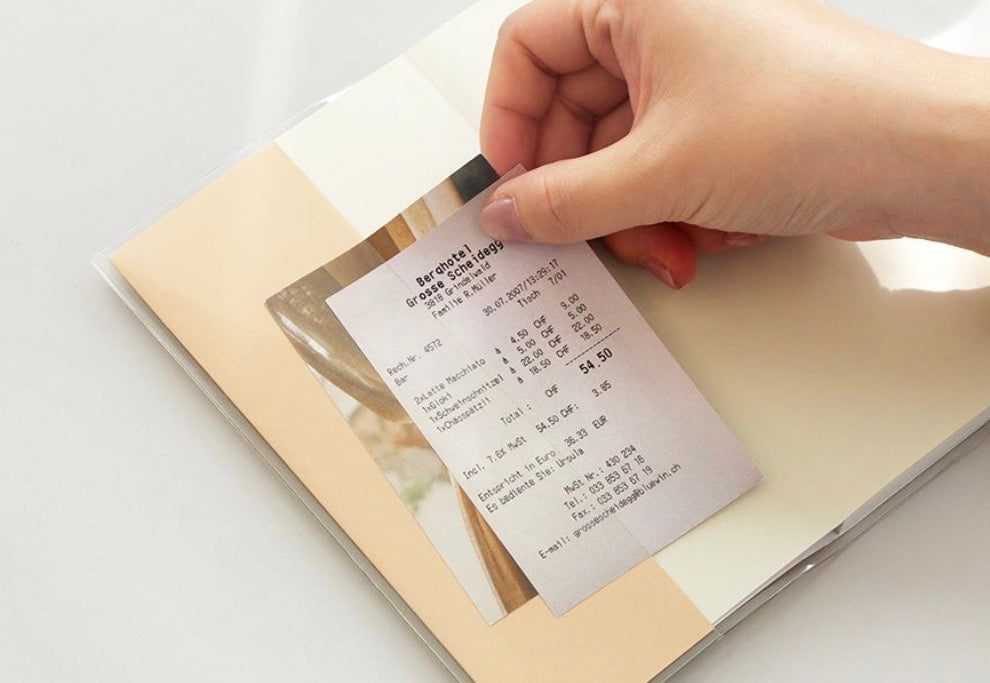 Berghotel
Grosse Scheidegg
3818 Grindelwald
Familie R.Müller
Rech.Nr. 4572 30.07.2007/13:29:17
Bar Tisch 7/01
2xLatte Macchiato à 4.50 CHF 9.00
1xGloki à 5.00 CHF 5.00
1xSchweinschnitzel à 22.00 CHF 22.00
1xChässpätzli à 18.50 CHF 18.50
Total: CHF 54.50
Incl. 7.6% MwSt 54.50 CHF: 3.85
Entspricht in Euro 36.33 EUR
Es bediente Sie: Ursula
MwSt Nr.: 430 234
Tel.: 033 853 67 16
Fax.: 033 853 67 19
E-mail: grossescheidegg@bluewin.ch